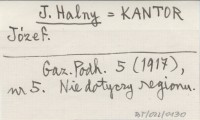 J. Halny = KANTOR
Józef.
Gaz. Podh. 5 (1917),
nr 5. Nie dotyczy regionu.
BT/011/0130